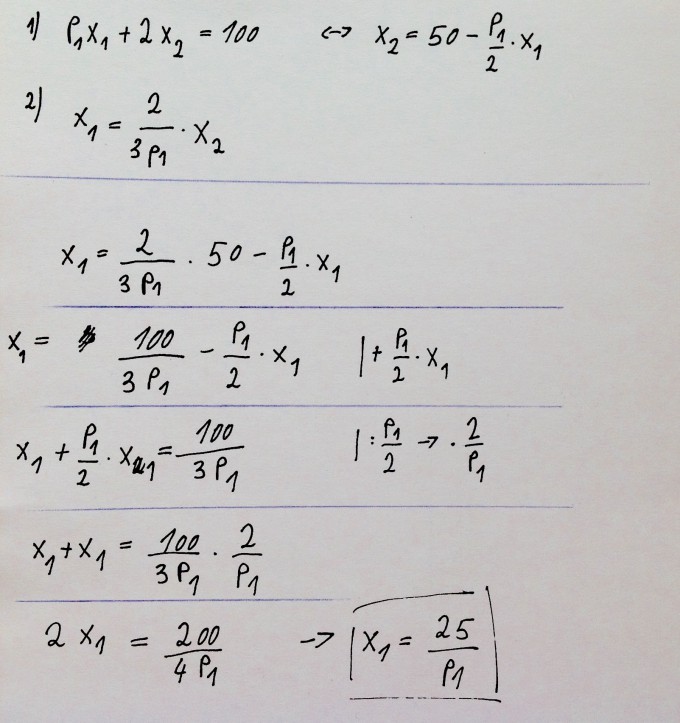 1) P₁x₁ + 2x₂ = 100 <-> x₂ = 50 - P₁/2 · x₁
2) x₁ = 2/(3P₁) · x₂
x₁ = 2/(3P₁) · 50 - P₁/2 · x₁
x₁ = 100/(3P₁) - P₁/2 · x₁ | + P₁/2 · x₁
x₁ + P₁/2 · x₁ = 100/(3P₁) | : P₁/2 -> · 2/P₁
x₁ + x₁ = 100/(3P₁) · 2/P₁
2x₁ = 200/(4P₁) -> x₁ = 25/P₁